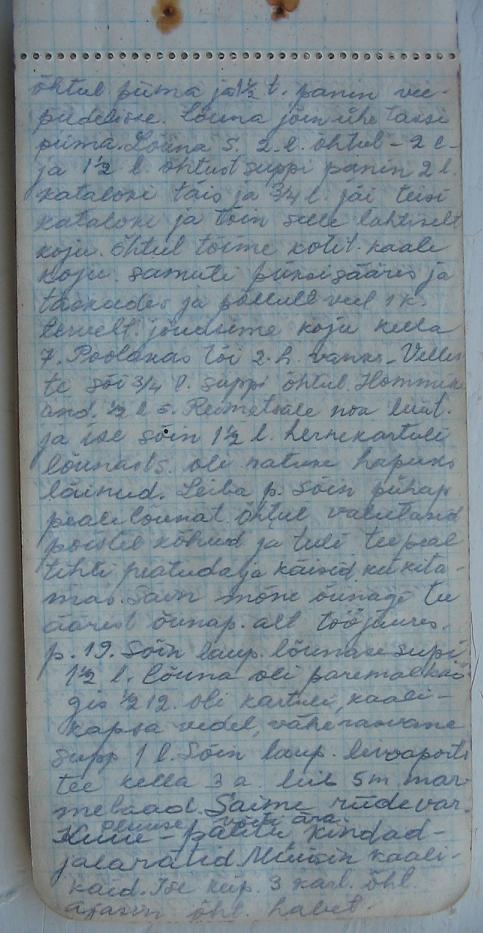 õhtul piima ja 1½ t. panin vee-
pudelisse. Lõuna jõin ühe tassi
piima. Lõuna s. 2. l. õhtul - 2 l -
ja 1½ l. õhtust suppi panin 2 l.
kataloki täis ja ¾ l. jäi teisi
kataloki ja tõin selle lahtiselt
koju. Õhtul tõime kotit. kaali
koju. samuti püksisääres ja
taskudes ja põllult veel 1 k.
tervelt. jõudsime koju kella
7. Poolakas tõi 2. h.
te sõi ¾ l. suppi õhtul. Hommik
and. ½ l s. Reimetsale
ja ise sõin 1½ l. hernekartuli
lõunast s. oli natuke hapuks
läinud. Leiba p. sõin pühap.
peale lõunat. Õhtul valutasid
poistel kõhud ja tuli teepeal
tihti peatuda ja käisid
mas. Sain mõne õunagi tee
äärest õunap. alt tööjuures.
p. 19. Sõin laup. lõunase supi
1½ l. Lõuna oli paremal köö-
gis ½ 12. oli kartuli, kaali-
kapsa vedel, väherasvane
supp 1 l. Sõin laup. leivaports
tee kella 3 a leib 5 m mar-
melaad. Saime riidevar.
pluuse võin ära.
Kuue - püksid, kindad -
jalarätid. Müüsin kaali-
kaid. Ise küp. 3 kart. õhl.
ajasin õhl. habet.